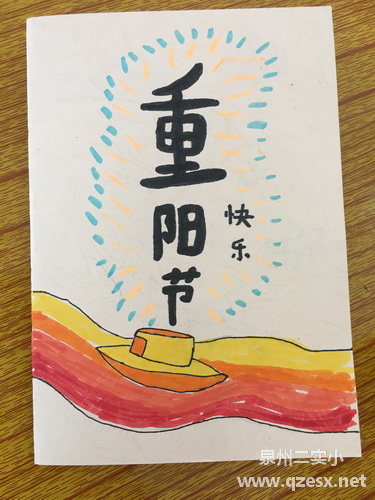 重阳节
快乐
泉州二实小
www.qzesx.net